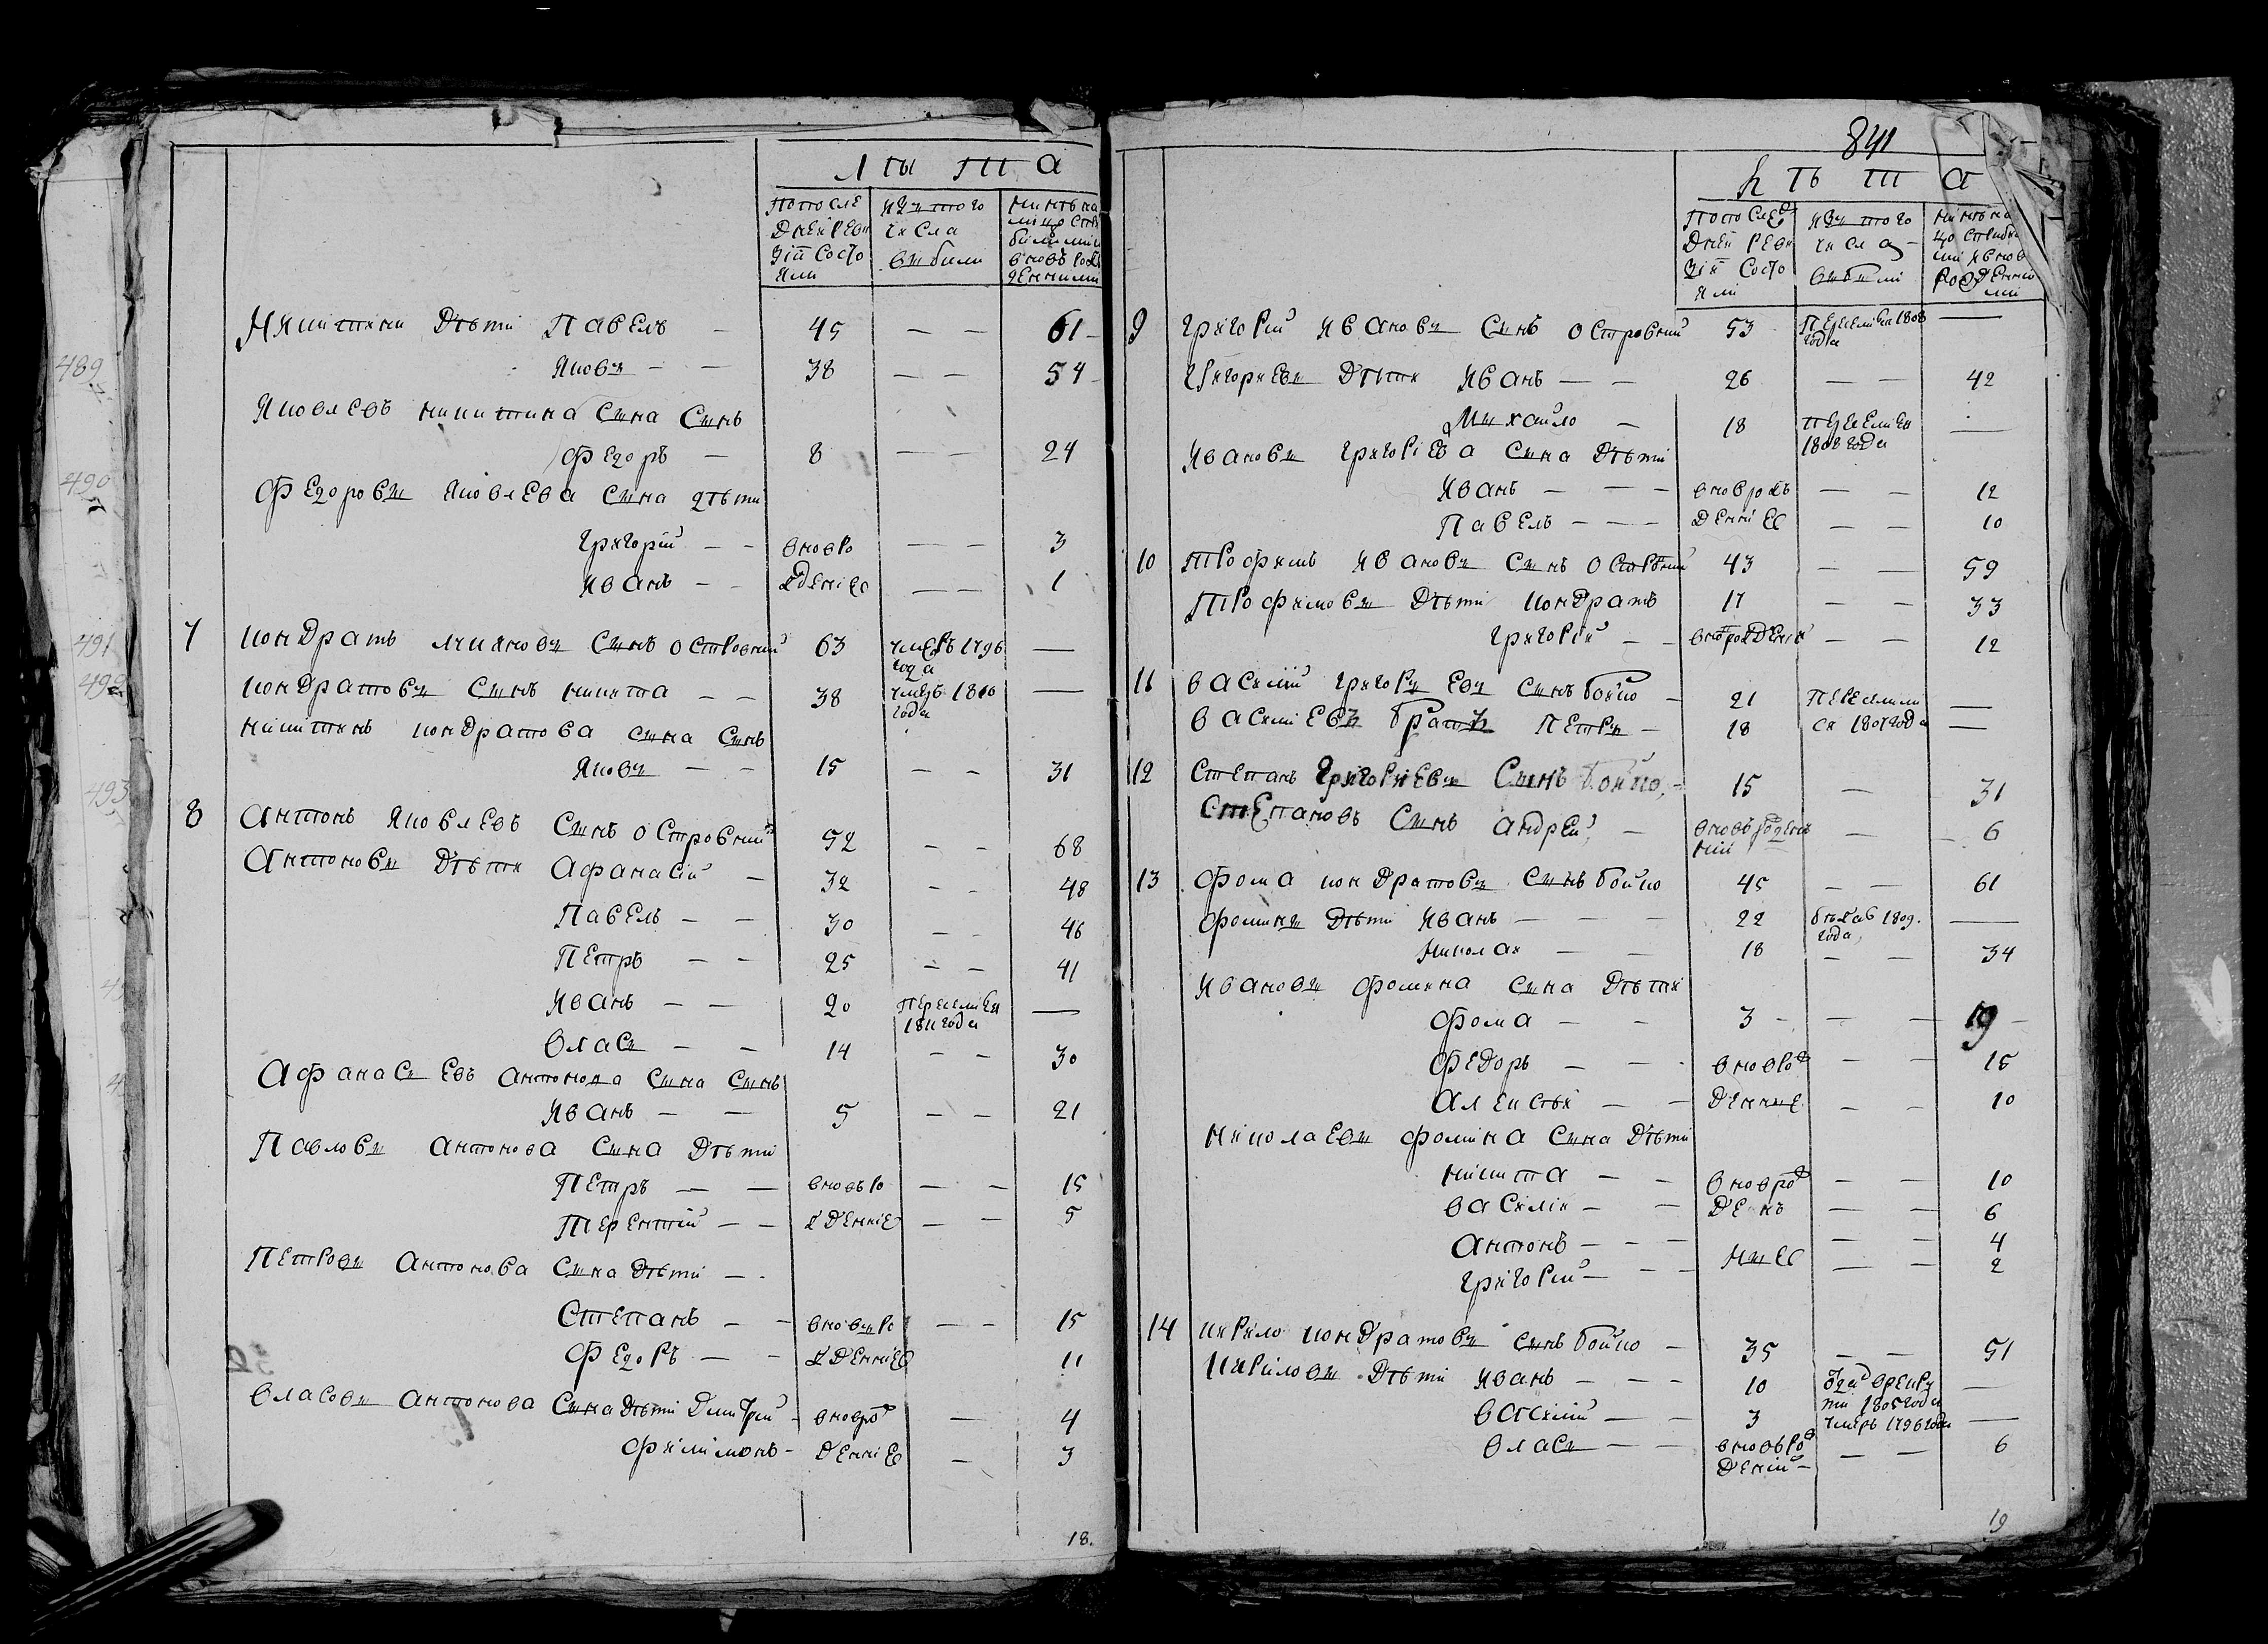 лѣта
по после изъ того нинѣ на
дней реви числа лицо съ
зіи состо выбыли вновь рож
яли денными
Никитини дѣти Павелъ — 45 — — 61
Яковъ — — 38 — — 54
Яковлевъ никитина сына сынъ
Федоръ — 8 — — 24
Федоровы яковлева сына дѣти
Григорій — — вновро — — 3
Иванъ — — жденіе — — 1
7 кондратъ сынъ островкий 63 умеръ 1796 года —
кондратовъ сынъ никита — — 38 умеръ 1810 года —
никитинъ кондратова сына сынъ
Яковъ — — 15 — — 31
8 антонъ яковлевъ сынъ островкий 52 — — 68
антоновы дѣти афанасій — 32 — — 48
Павелъ — — 30 — — 46
Петръ — — 25 — — 41
Иванъ — — 20 переселився 1811 года —
власъ — — 14 — — 30
афанасьевъ антонова сына сынъ
Иванъ — — 5 — — 21
Павловы антонова сына дѣти
Петръ — — вновьро — — 15
Терентій — — жденніе — — 5
Петровы антонова сына дѣти — .
Степанъ — — вновъро — — 15
Федоръ — — жденніе 11
власовы антонова сына дѣти Дмитрій — вноврож — 4
филимонъ — денніе — 3
18.
841
лѣта
по послед изъ того нинѣ на
дней реви числа
зіи состо выбыли
яли рожденни
ми
9 григорій ивановъ сынъ островкий 53 переселився 1808 года —
григориеви дѣти иванъ — — 26 — — 42
Михайло — 18 переселився 1808 года —
ивановы григоріева сына дѣти
иванъ — — — вноврож — — 12
Павелъ — — — денніе — — 10
10 трофимъ ивановъ сынъ островкий 43 — — 59
трофимовы дѣти кондратъ 17 — — 33
григорій — — вноврожденій — — 12
11 василій григорьевъ сынъ бойко — 21 переселили —
василіевъ братъ петръ — 18 ся 1807 года —
12 степанъ григориевъ сынъ бойко — 15 — 31
степановъ сынъ андрей — вновьрожден ний — 6
13 фома кондратовъ сынъ бойко 45 — — 61
фомины дѣти иванъ — — — 22 бѣжав 1809. года —
николай — — 18 — — 34
ивановы фомина сына дѣти
фома — — 3 — — — 19 —
федоръ — — — вноврож — — 15
алексѣй — — денние — — 10
николаевы фомина сына дѣти
никита — — вноврож — — 10
василій — — денъ — — 6
антонъ — — — ные — — 4
григорій — — — — — 2
14 кирило кондратовъ сынъ бойко — 35 — — 51
кириловы дѣти иванъ — — — 10 в рекру ти 1805 года —
василій — — 3 умеръ 1796 года —
власъ — — вновьрож деній — — — 6
19
489
490
491
492
493